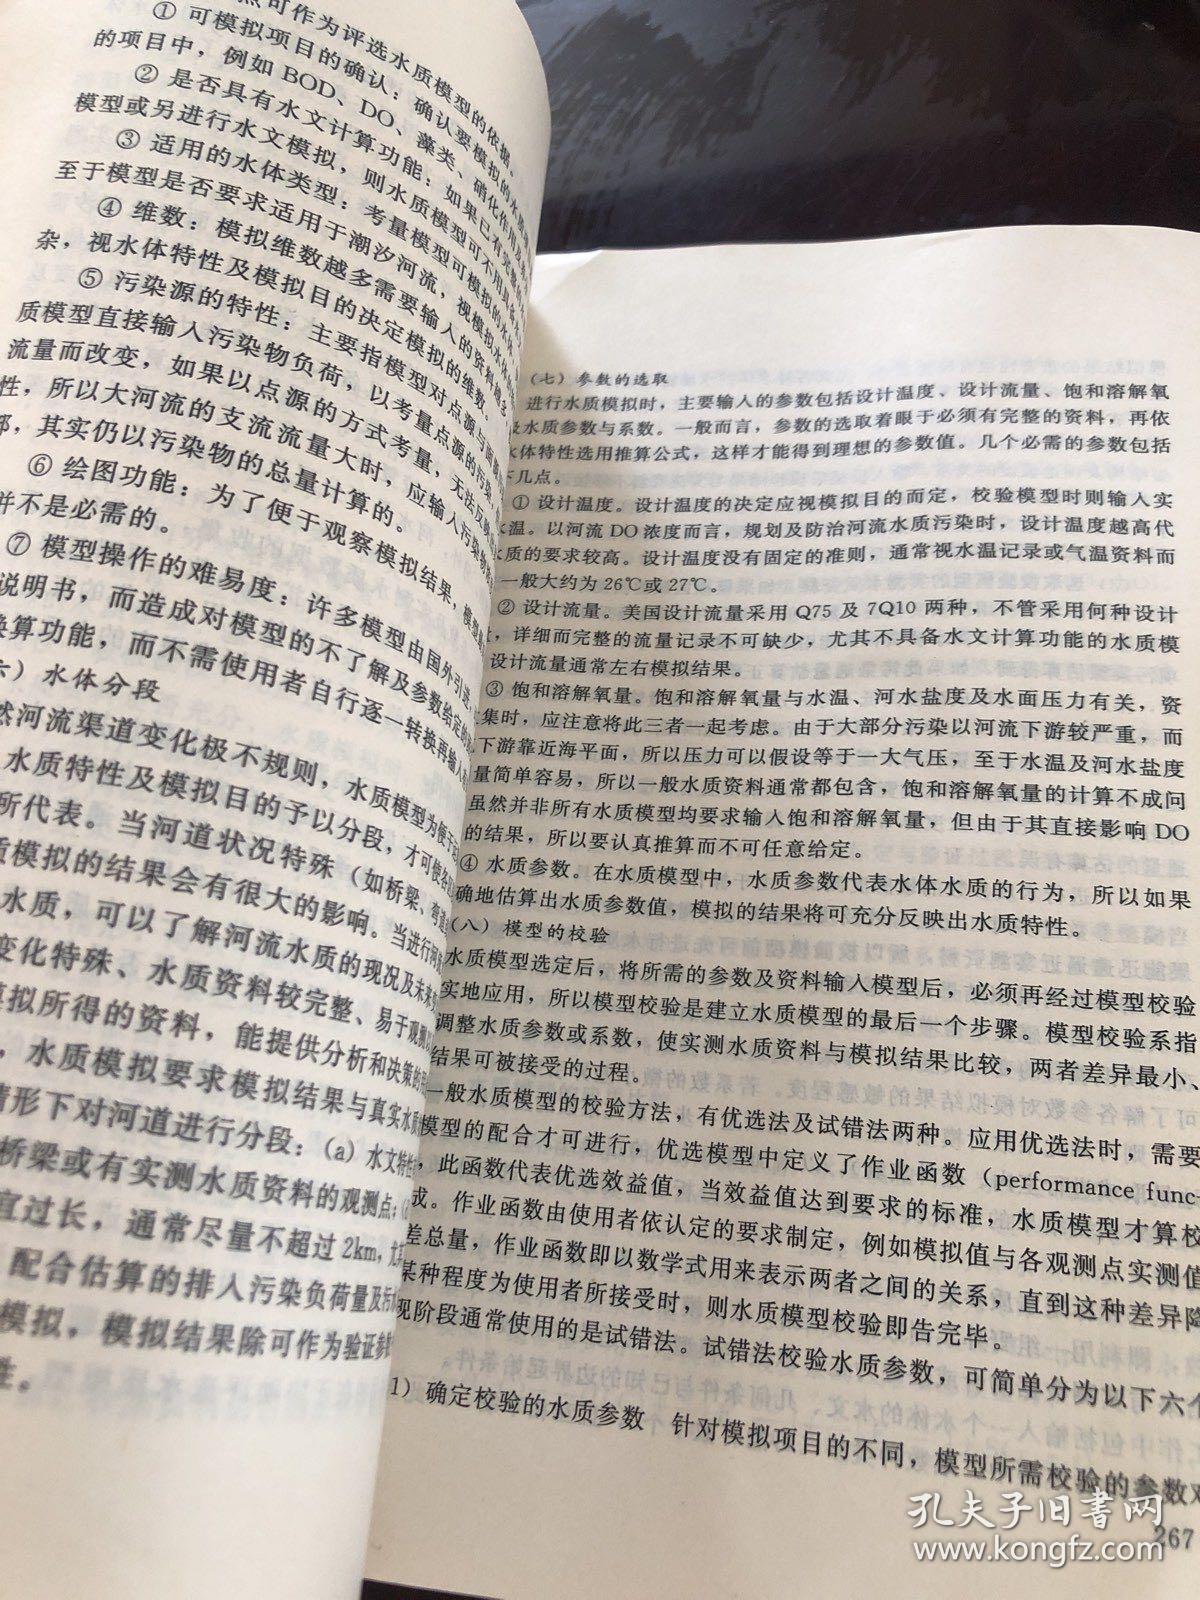 点可作为评选水质模型的依据。
① 可模拟项目的确认：确认要模拟的水质
的项目中，例如 BOD、DO、藻类、硝化作用
② 是否具有水文计算功能：如果已有完整的
模型或另进行水文模拟，则水质模型可不用具备
③ 适用的水体类型：考量模型可模拟的水体
至于模型是否要求适用于潮汐河流，视模拟水体
④ 维数：模拟维数越多需要输入的资料越多
杂，视水体特性及模拟目的决定模拟的维数。
⑤ 污染源的特性：主要指模型对点源与面源
质模型直接输入污染物负荷，以考量点源的污染
流量而改变，如果以点源的方式考量，无法反映
性，所以大河流的支流流量大时，应输入污染物
那，其实仍以污染物的总量计算的。
⑥ 绘图功能：为了便于观察模拟结果，模型
并不是必需的。
⑦ 模型操作的难易度：许多模型由国外引进，
说明书，而造成对模型的不了解及参数给定的
换算功能，而不需使用者自行逐一转换再输入
六）水体分段
然河流渠道变化极不规则，水质模型为便于
水质特性及模拟目的予以分段，才可使各
所代表。当河道状况特殊（如桥梁，弯道
质模拟的结果会有很大的影响。当进行河
水质，可以了解河流水质的现况及未来
变化特殊、水质资料较完整、易于观测
模拟所得的资料，能提供分析和决策的
，水质模拟要求模拟结果与真实水质
情形下对河道进行分段：(a) 水文特性
桥梁或有实测水质资料的观测点；
宜过长，通常尽量不超过 2km，尤
配合估算的排入污染负荷量及污
模拟，模拟结果除可作为验证
性。
（七）参数的选取
进行水质模拟时，主要输入的参数包括设计温度、设计流量、饱和溶解氧
及水质参数与系数。一般而言，参数的选取着眼于必须有完整的资料，再依
水体特性选用推算公式，这样才能得到理想的参数值。几个必需的参数包括
下几点。
① 设计温度。设计温度的决定应视模拟目的而定，校验模型时则输入实
水温。以河流 DO 浓度而言，规划及防治河流水质污染时，设计温度越高代
水质的要求较高。设计温度没有固定的准则，通常视水温记录或气温资料而
一般大约为 26℃或 27℃。
② 设计流量。美国设计流量采用 Q75 及 7Q10 两种，不管采用何种设计
，详细而完整的流量记录不可缺少，尤其不具备水文计算功能的水质模
设计流量通常左右模拟结果。
③ 饱和溶解氧量。饱和溶解氧量与水温、河水盐度及水面压力有关，资
集时，应注意将此三者一起考虑。由于大部分污染以河流下游较严重，而
下游靠近海平面，所以压力可以假设等于一大气压，至于水温及河水盐度
量简单容易，所以一般水质资料通常都包含，饱和溶解氧量的计算不成问
虽然并非所有水质模型均要求输入饱和溶解氧量，但由于其直接影响 DO
的结果，所以要认真推算而不可任意给定。
④ 水质参数。在水质模型中，水质参数代表水体水质的行为，所以如果
确地估算出水质参数值，模拟的结果将可充分反映出水质特性。
（八）模型的校验
水质模型选定后，将所需的参数及资料输入模型后，必须再经过模型校验
实地应用，所以模型校验是建立水质模型的最后一个步骤。模型校验系指
调整水质参数或系数，使实测水质资料与模拟结果比较，两者差异最小、
结果可被接受的过程。
一般水质模型的校验方法，有优选法及试错法两种。应用优选法时，需要
模型的配合才可进行，优选模型中定义了作业函数（performance func-
，此函数代表优选效益值，当效益值达到要求的标准，水质模型才算校
成。作业函数由使用者依认定的要求制定，例如模拟值与各观测点实测值
差总量，作业函数即以数学式用来表示两者之间的关系，直到这种差异降
某种程度为使用者所接受时，则水质模型校验即告完毕。
现阶段通常使用的是试错法。试错法校验水质参数，可简单分为以下六个
1）确定校验的水质参数　针对模拟项目的不同，模型所需校验的参数
267
孔夫子旧书网
www.kongfz.com